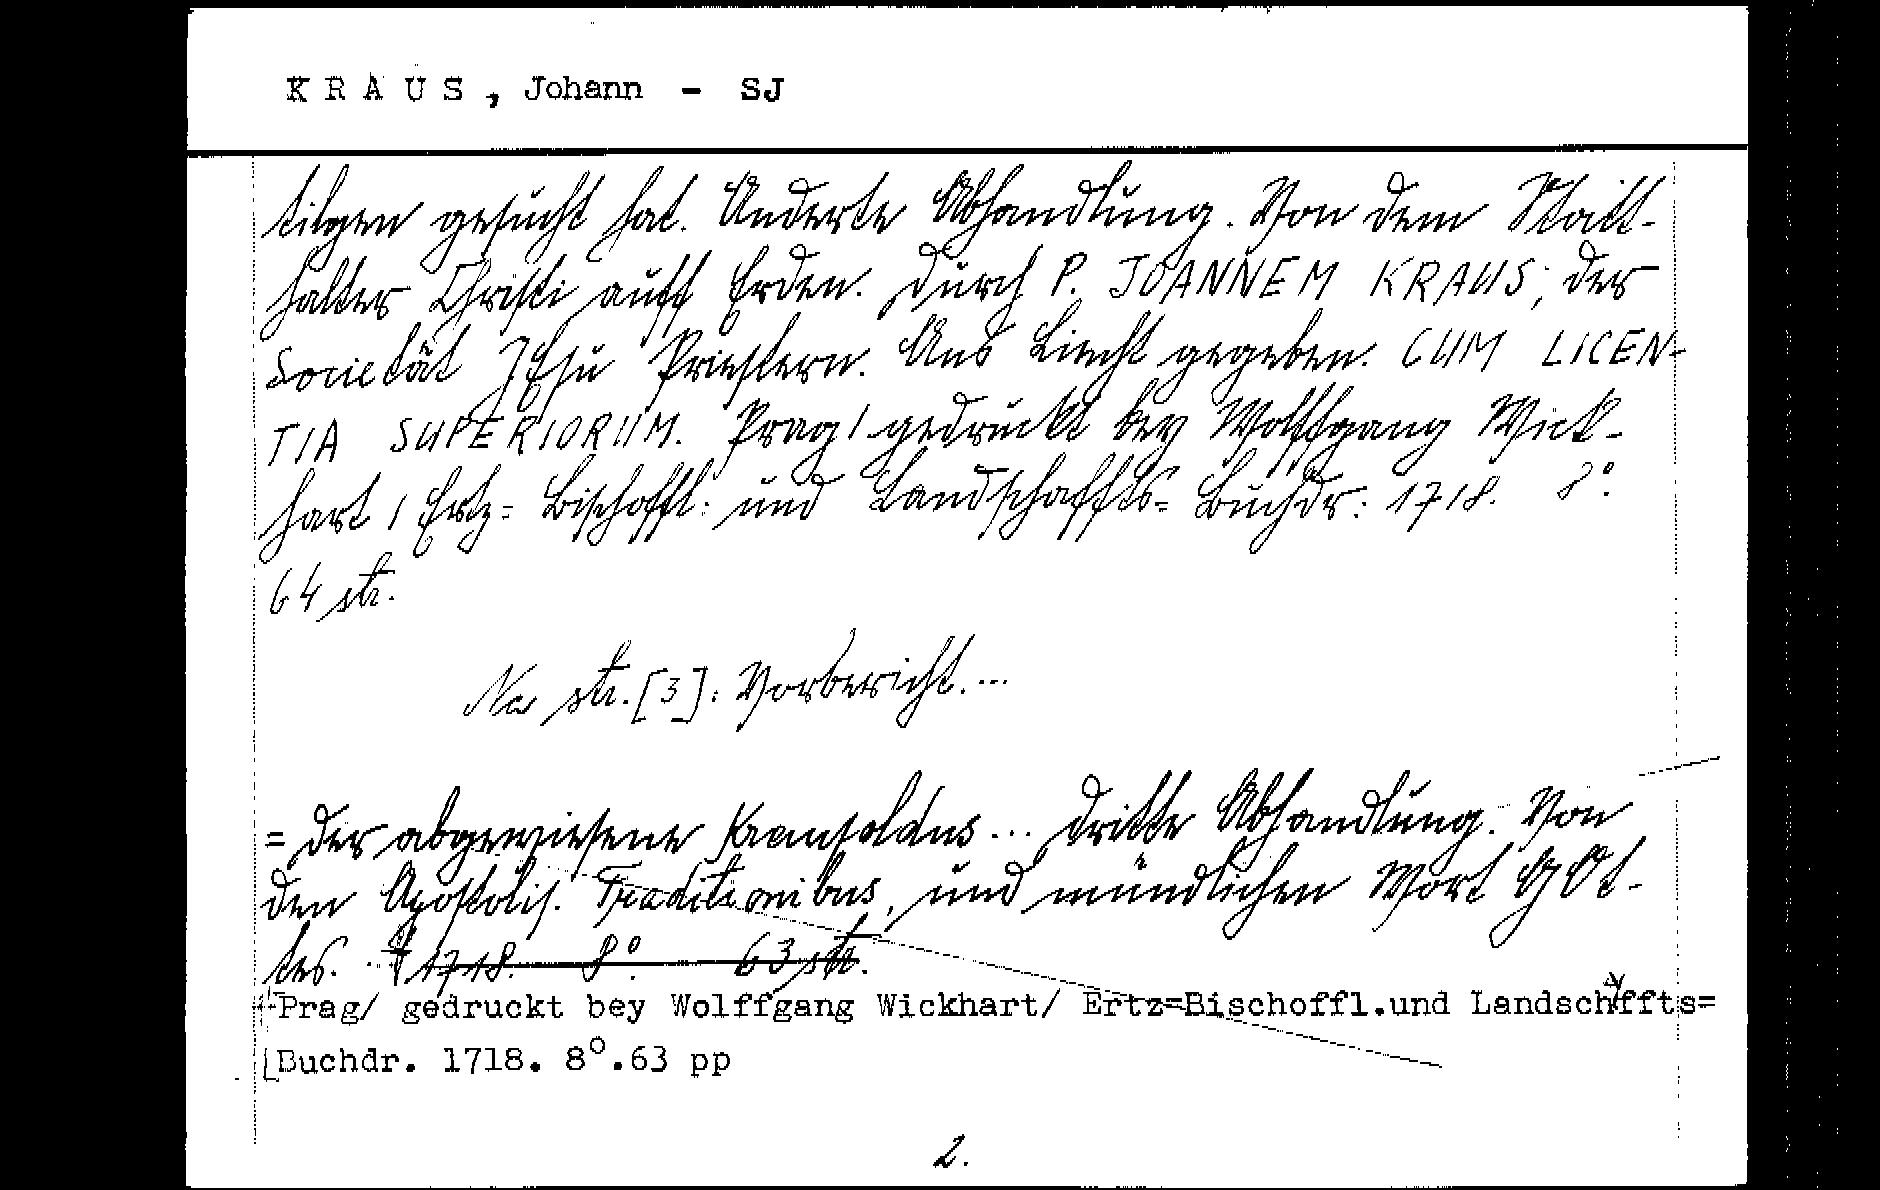 KRAUS, Johann - SJ
tilgen gesucht hat. Anderte Abhandlung. Von dem Statt-
halter Christi auff Erden. Durch P. JOANNEM KRAUS; der
Societät JEsu Priestern. Ans Liecht gegeben. CUM LICEN-
TIA SUPERIORUM. Prag/ gedruckt bey Wolffgang Wick-
hart / Ertz= Bischoffl: und Landschaffts= Buchdr: 1718. 8°.
64 str.
Na str. [3]: Vorbericht. ...
= Der abgewiesene ... Dritte Abhandlung. Von
den Apostolis. Traditionibus, und mündlichen Wort GOt-
tes. 1718. 8°. 63 str.
Prag/ gedruckt bey Wolffgang Wickhart/ Ertz=Bischoffl.und Landschffts=
Buchdr. 1718. 8°.63 pp
2.